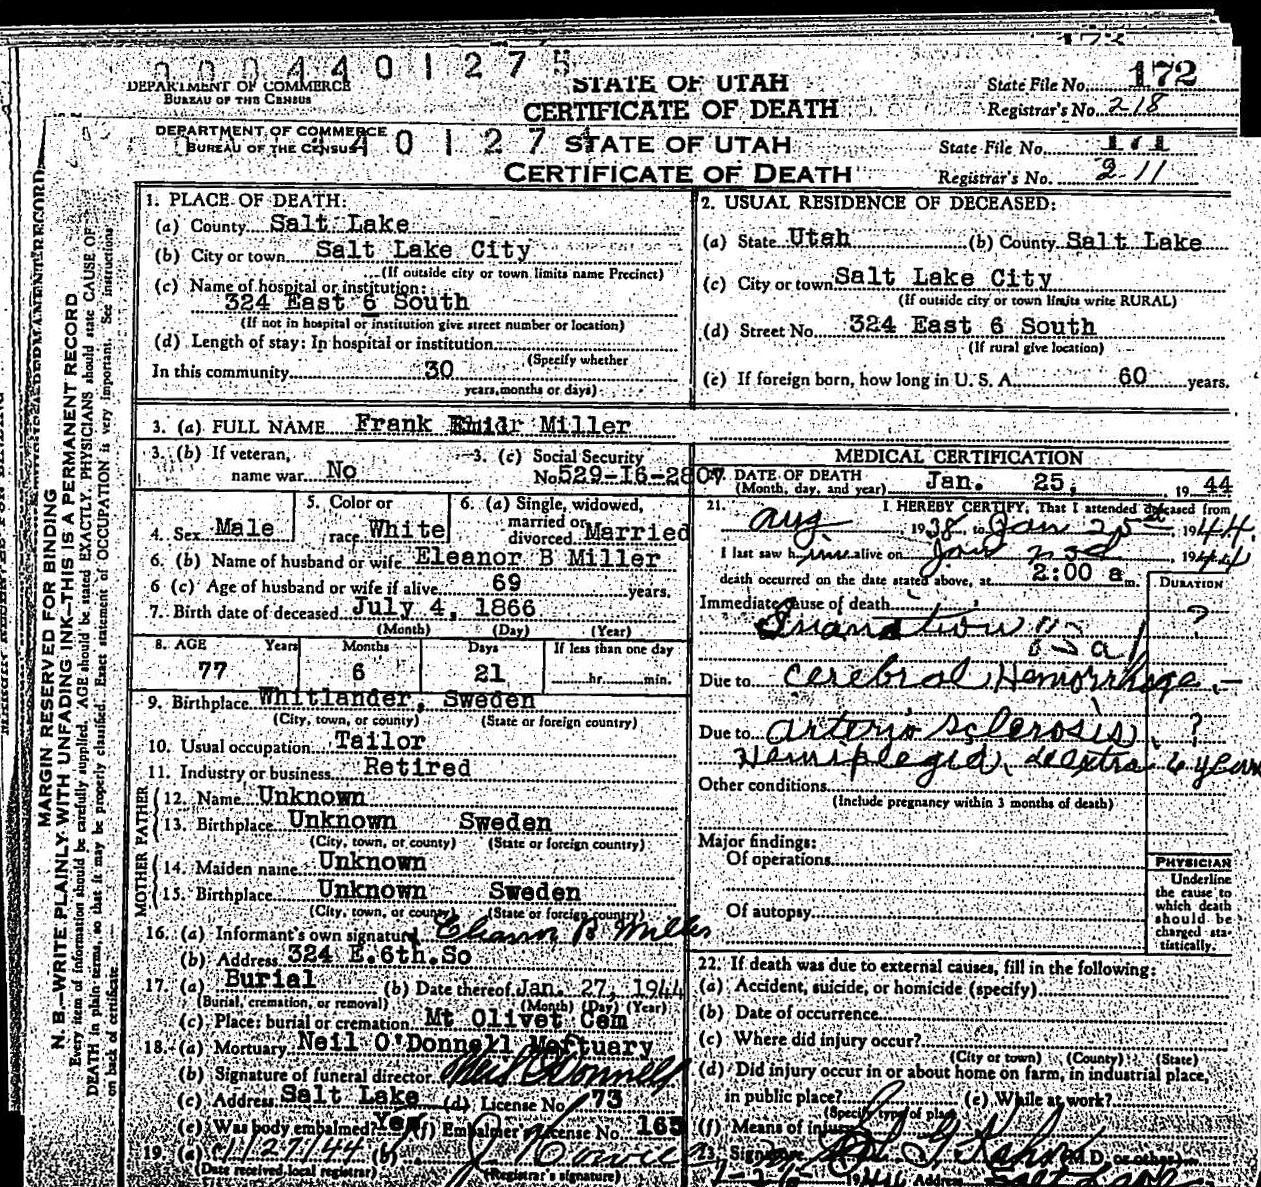 173
0004401275
DEPARTMENT OF COMMERCE
BUREAU OF THE CENSUS
STATE OF UTAH
CERTIFICATE OF DEATH
State File No. 172
Registrar's No. 218
DEPARTMENT OF COMMERCE
BUREAU OF THE CENSUS
440127
STATE OF UTAH
CERTIFICATE OF DEATH
State File No. 171
Registrar's No. 211
MARGIN RESERVED FOR BINDING
N. B.—WRITE PLAINLY WITH UNFADING INK—THIS IS A PERMANENT RECORD
Every item of information should be carefully supplied. AGE should be stated EXACTLY. PHYSICIANS should state CAUSE OF
DEATH in plain terms, so that it may be properly classified. Exact statement of OCCUPATION is very important. See instructions
on back of certificate.
1. PLACE OF DEATH:
(a) County Salt Lake
(b) City or town Salt Lake City
(If outside city or town limits name Precinct)
(c) Name of hospital or institution:
324 East 6 South
(If not in hospital or institution give street number or location)
(d) Length of stay: In hospital or institution
(Specify whether
In this community 30
years, months or days)
2. USUAL RESIDENCE OF DECEASED:
(a) State Utah (b) County Salt Lake
(c) City or town Salt Lake City
(If outside city or town limits write RURAL)
(d) Street No. 324 East 6 South
(If rural give location)
(e) If foreign born, how long in U. S. A. 60 years.
3. (a) FULL NAME Frank Miller
3. (b) If veteran,
name war No
3. (c) Social Security
No. 529-16-2807
4. Sex Male
5. Color or
race White
6. (a) Single, widowed,
married or
divorced Married
6. (b) Name of husband or wife Eleanor B Miller
6 (c) Age of husband or wife if alive 69 years.
7. Birth date of deceased July 4, 1866
(Month) (Day) (Year)
8. AGE Years Months Days If less than one day
77 6 21 hr. min.
9. Birthplace Whitlander, Sweden
(City, town, or county) (State or foreign country)
10. Usual occupation Tailor
11. Industry or business Retired
FATHER
12. Name Unknown
13. Birthplace Unknown Sweden
(City, town, or county) (State or foreign country)
MOTHER
14. Maiden name Unknown
15. Birthplace Unknown Sweden
(City, town, or county) (State or foreign country)
16. (a) Informant's own signature Eleanor B Miller
(b) Address 324 E.6th.So
17. (a) Burial (b) Date thereof Jan. 27, 1944
(Burial, cremation, or removal) (Month) (Day) (Year)
(c) Place: burial or cremation Mt Olivet Cem
18. (a) Mortuary Neil O'Donnell Mortuary
(b) Signature of funeral director Neil O'Donnell
(c) Address Salt Lake (d) License No. 73
(e) Was body embalmed? Yes (f) Embalmer License No. 165
19. (a) 1/27/44 (b)
(Date received local registrar) (Registrar's signature)
MEDICAL CERTIFICATION
DATE OF DEATH
(Month, day, and year) Jan. 25, 1944
21. I HEREBY CERTIFY, That I attended deceased from
Aug 1938 to Jan 25 1944.
I last saw him alive on Jan 1944
death occurred on the date stated above, at 2:00 a m.
DURATION
Immediate cause of death
Inanition ?
Due to Cerebral Hemorrhage
Due to Arterio Sclerosis ?
Hemiplegia, dextra 6 years
Other conditions
(Include pregnancy within 3 months of death)
Major findings:
Of operations
Of autopsy
PHYSICIAN
Underline
the cause to
which death
should be
charged sta-
tistically.
22. If death was due to external causes, fill in the following:
(a) Accident, suicide, or homicide (specify)
(b) Date of occurrence
(c) Where did injury occur?
(City or town) (County) (State)
(d) Did injury occur in or about home on farm, in industrial place,
in public place? (e) While at work?
(Specify type of place)
(f) Means of injury
23. Signature M.D. or other
1944 Address Salt Lake